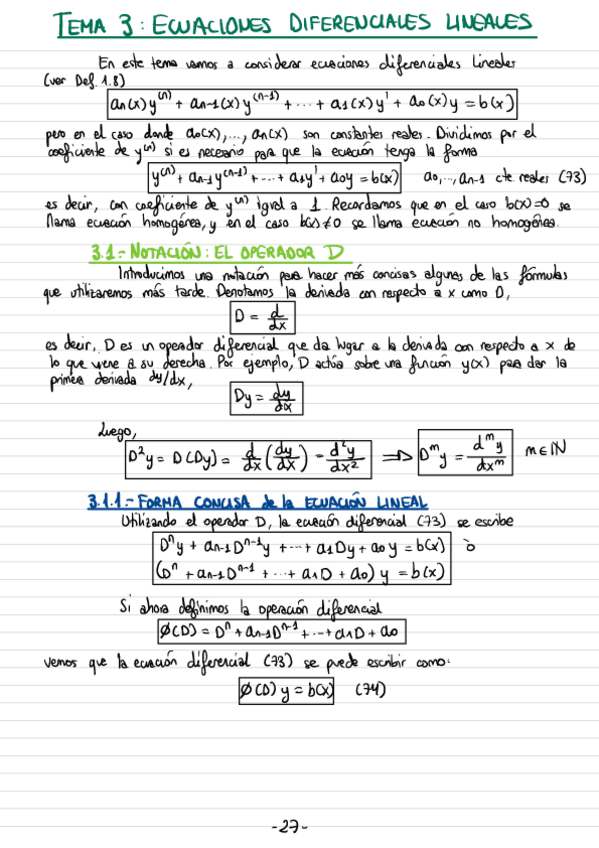 TEMA 3: ECUACIONES DIFERENCIALES LINEALES
En este tema vamos a considerar ecuaciones diferenciales lineales
(ver Def. 1.8)
aₙ(x)y⁽ⁿ⁾ + aₙ₋₁(x)y⁽ⁿ⁻¹⁾ + ... + a₁(x)y' + a₀(x)y = b(x)
pero en el caso donde a₀(x), ..., aₙ(x) son constantes reales. Dividimos por el
coeficiente de y⁽ⁿ⁾ si es necesario para que la ecuación tenga la forma
y⁽ⁿ⁾ + aₙ₋₁y⁽ⁿ⁻¹⁾ + ... + a₁y' + a₀y = b(x) a₀, ..., aₙ₋₁ cte. reales (73)
es decir, con coeficiente de y⁽ⁿ⁾ igual a 1. Recordamos que en el caso b(x)=0 se
llama ecuación homogénea, y en el caso b(x)≠0 se llama ecuación no homogénea.
3.1.- NOTACIÓN: EL OPERADOR D
Introducimos una notación para hacer más concisas algunas de las fórmulas
que utilizaremos más tarde. Denotamos la derivada con respecto a x como D,
D = d/dx
es decir, D es un operador diferencial que da lugar a la derivada con respecto a x de
lo que viene a su derecha. Por ejemplo, D actúa sobre una función y(x) para dar la
primera derivada dy/dx,
Dy = dy/dx
Luego,
D²y = D(Dy) = d/dx (dy/dx) = d²y/dx² ⇒ Dᵐy = dᵐy/dxᵐ m∈ℕ
3.1.1.- FORMA CONCISA de la ECUACIÓN LINEAL
Utilizando el operador D, la ecuación diferencial (73) se escribe
Dⁿy + aₙ₋₁Dⁿ⁻¹y + ... + a₁Dy + a₀y = b(x) ò
(Dⁿ + aₙ₋₁Dⁿ⁻¹ + ... + a₁D + a₀) y = b(x)
Si ahora definimos la operación diferencial
Ø(D) = Dⁿ + aₙ₋₁Dⁿ⁻¹ + ... + a₁D + a₀
vemos que la ecuación diferencial (73) se puede escribir como:
Ø(D) y = b(x) (74)
-27-